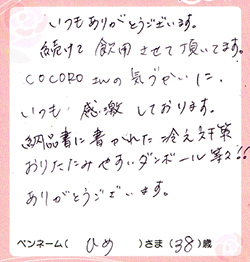 いつもありがとうございます。
続けて飲用させて頂いてます。
COCOROさんの気づかいに、
いつも感激しております。
納品書に書かれた冷え対策
おりたたみやすいダンボール等々!!
ありがとうございます。
ペンネーム( ひめ )さま(38)歳